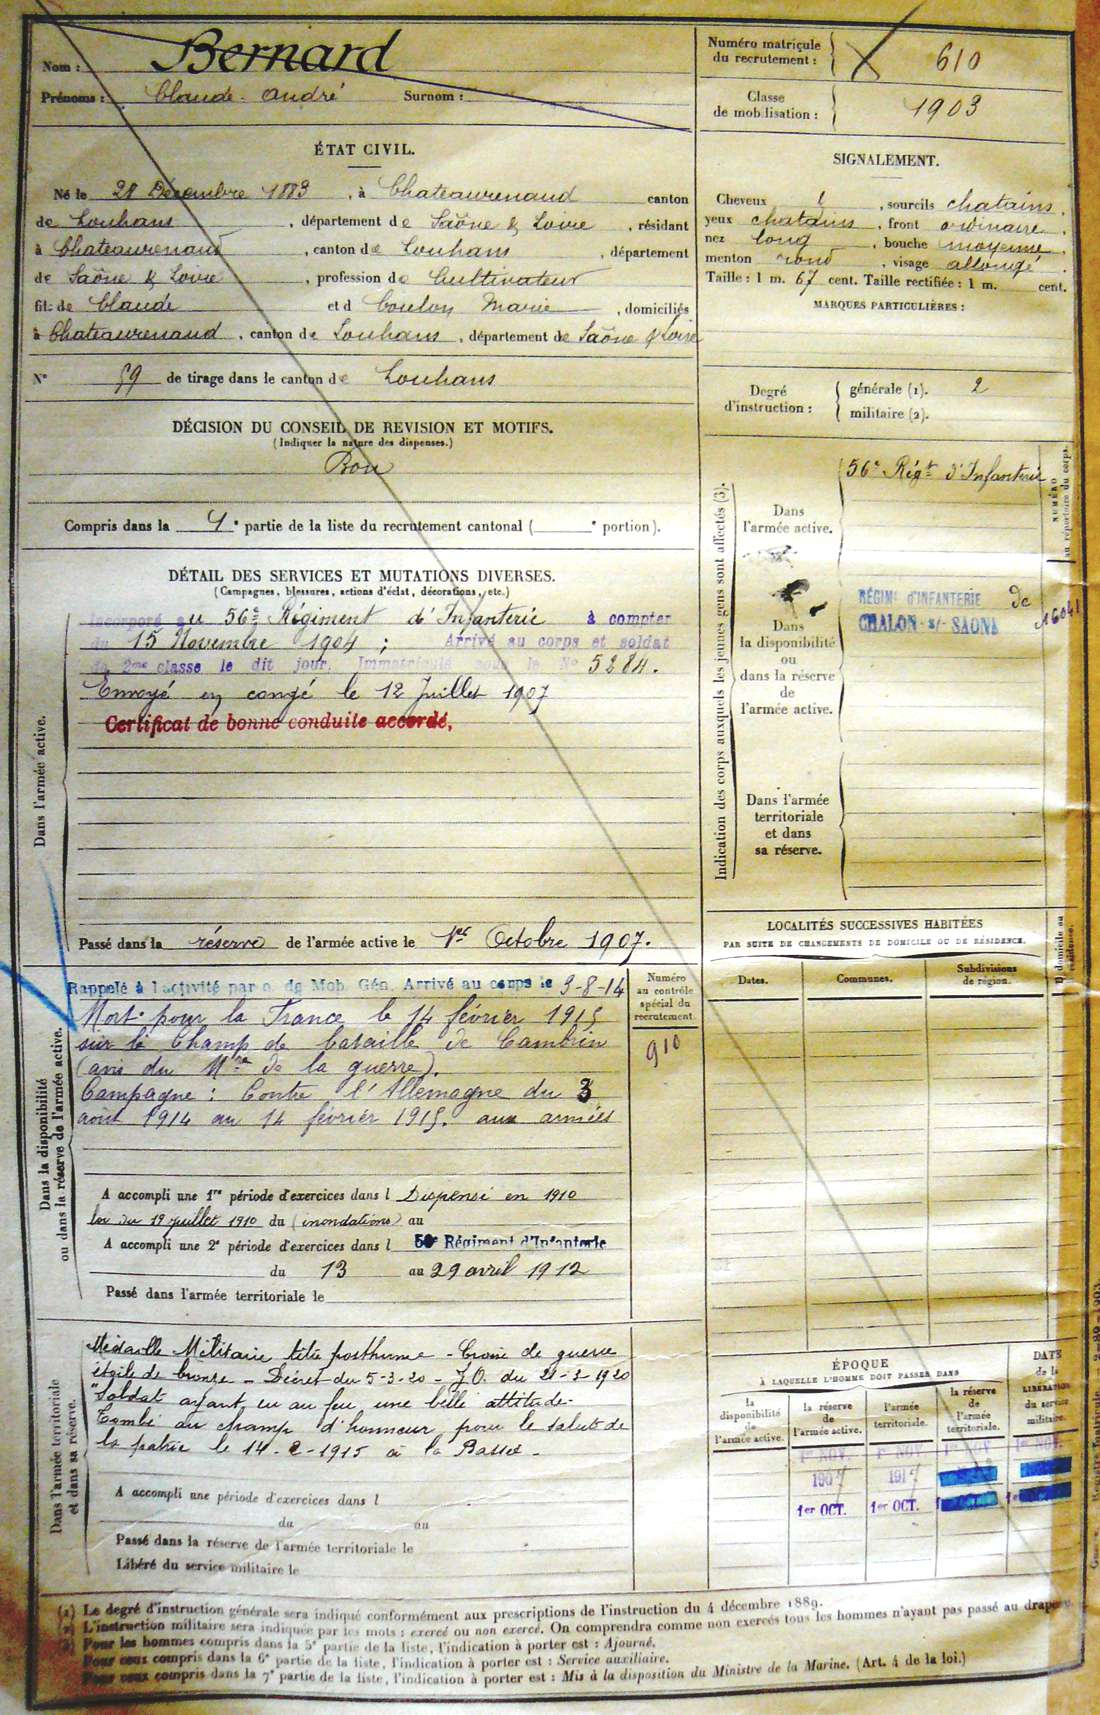 Nom : Bernard
Prénoms : Claude André Surnom :
Numéro matricule du recrutement : 610
Classe de mobilisation : 1903
ÉTAT CIVIL.
Né le 28 Décembre 1883, à Chateaurenaud canton
de Louhans, département de Saône & Loire, résidant
à Chateaurenaud, canton de Louhans, département
de Saône & Loire, profession de Cultivateur
fils de Claude et d Coulon Marie, domiciliés
à Chateaurenaud, canton de Louhans, département de Saône & Loire
N° 59 de tirage dans le canton de Louhans
SIGNALEMENT.
Cheveux, sourcils chatains,
yeux chatains, front ordinaire,
nez long, bouche moyenne,
menton rond, visage allongé.
Taille : 1 m. 67 cent. Taille rectifiée : 1 m. cent.
MARQUES PARTICULIÈRES :
Degré d'instruction : générale (1). 2
militaire (2).
DÉCISION DU CONSEIL DE REVISION ET MOTIFS.
(Indiquer la nature des dispenses.)
Bon
Compris dans la 1e partie de la liste du recrutement cantonal ( e portion).
DÉTAIL DES SERVICES ET MUTATIONS DIVERSES.
(Campagnes, blessures, actions d'éclat, décorations, etc.)
Dans l'armée active.
Incorporé au 56e Régiment d'Infanterie à compter
du 15 Novembre 1904 ; Arrivé au corps et soldat
de 2me classe le dit jour. Immatriculé sous le No 5284.
Envoyé en congé le 12 Juillet 1907
Certificat de bonne conduite accordé,
Passé dans la réserve de l'armée active le 1er Octobre 1907.
Indication des corps auxquels les jeunes gens sont affectés (3).
NUMÉRO au répertoire du corps.
Dans l'armée active.
56e Régt d'Infanterie
Dans la disponibilité ou dans la réserve de l'armée active.
RÉGIMt d'INFANTERIE de
CHALON-s/-SAONE
Dans l'armée territoriale et dans sa réserve.
LOCALITÉS SUCCESSIVES HABITÉES
PAR SUITE DE CHANGEMENTS DE DOMICILE OU DE RÉSIDENCE.
Dates. Communes. Subdivisions de région. D. domicile ou résidence.
Dans la disponibilité ou dans la réserve de l'armée active.
Numéro au contrôle spécial du recrutement.
910
Rappelé à l'activité par o. de Mob. Gén. Arrivé au corps le 3-8-14
Mort pour la France le 14 février 1915
sur le Champ de bataille de Cambrin
(avis du Mtre de la guerre).
Campagne : Contre l'Allemagne du 3
août 1914 au 14 février 1915. aux armées
A accompli une 1re période d'exercices dans l Dispensé en 1910
loi du 19 juillet 1910 du (inondations) au
A accompli une 2e période d'exercices dans l 56e Régiment d'Infanterie
du 13 au 29 avril 1912
Passé dans l'armée territoriale le
Dans l'armée territoriale et dans sa réserve.
Médaille Militaire titre posthume - Croix de guerre
étoile de bronze - Décret du 5-3-20 - J.O. du 21-3-1920
"Soldat ayant eu au feu une belle attitude.
Tombé au champ d'honneur pour le salut de
la patrie le 14-2-1915 à la Bassée -
A accompli une période d'exercices dans l
du au
Passé dans la réserve de l'armée territoriale le
Libéré du service militaire le
ÉPOQUE
À LAQUELLE L'HOMME DOIT PASSER DANS
la disponibilité de l'armée active.
la réserve de l'armée active.
l'armée territoriale.
la réserve de l'armée territoriale.
DATE de la LIBÉRATION du service militaire.
1er NOV. 1er NOV. 1er NOV. 1er NOV.
1907 1917
1er OCT. 1er OCT.
(1) Le degré d'instruction générale sera indiqué conformément aux prescriptions de l'instruction du 4 décembre 1889.
(2) L'instruction militaire sera indiquée par les mots : exercé ou non exercé. On comprendra comme non exercés tous les hommes n'ayant pas passé au drapeau.
(3) Pour les hommes compris dans la 5e partie de la liste, l'indication à porter est : Ajourné.
Pour ceux compris dans la 6e partie de la liste, l'indication à porter est : Service auxiliaire.
Pour ceux compris dans la 7e partie de la liste, l'indication à porter est : Mis à la disposition du Ministre de la Marine. (Art. 4 de la loi.)